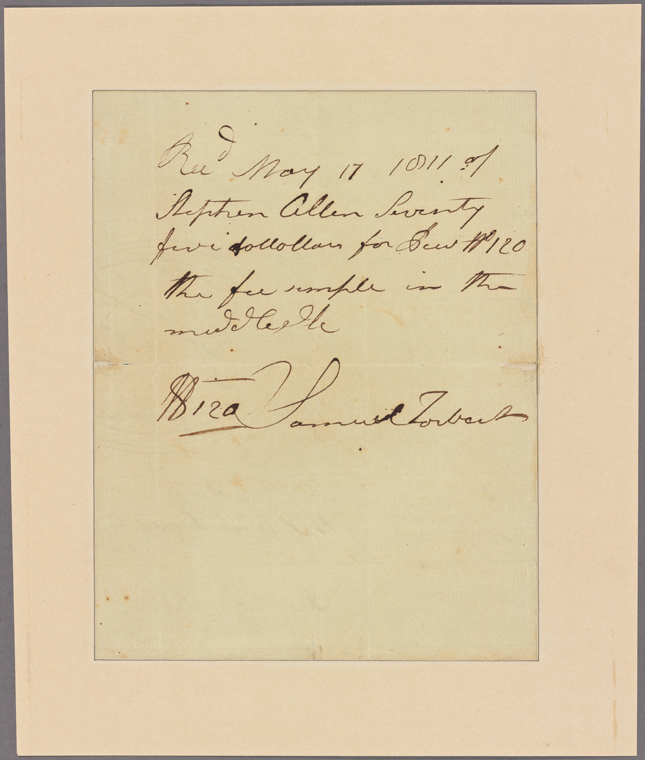 Recd May 17 1811 of
Stephen Allen Seventy
five dollars for Pew No 120
the fee simple in the
middle Ile
No 120 Samuel Torbert